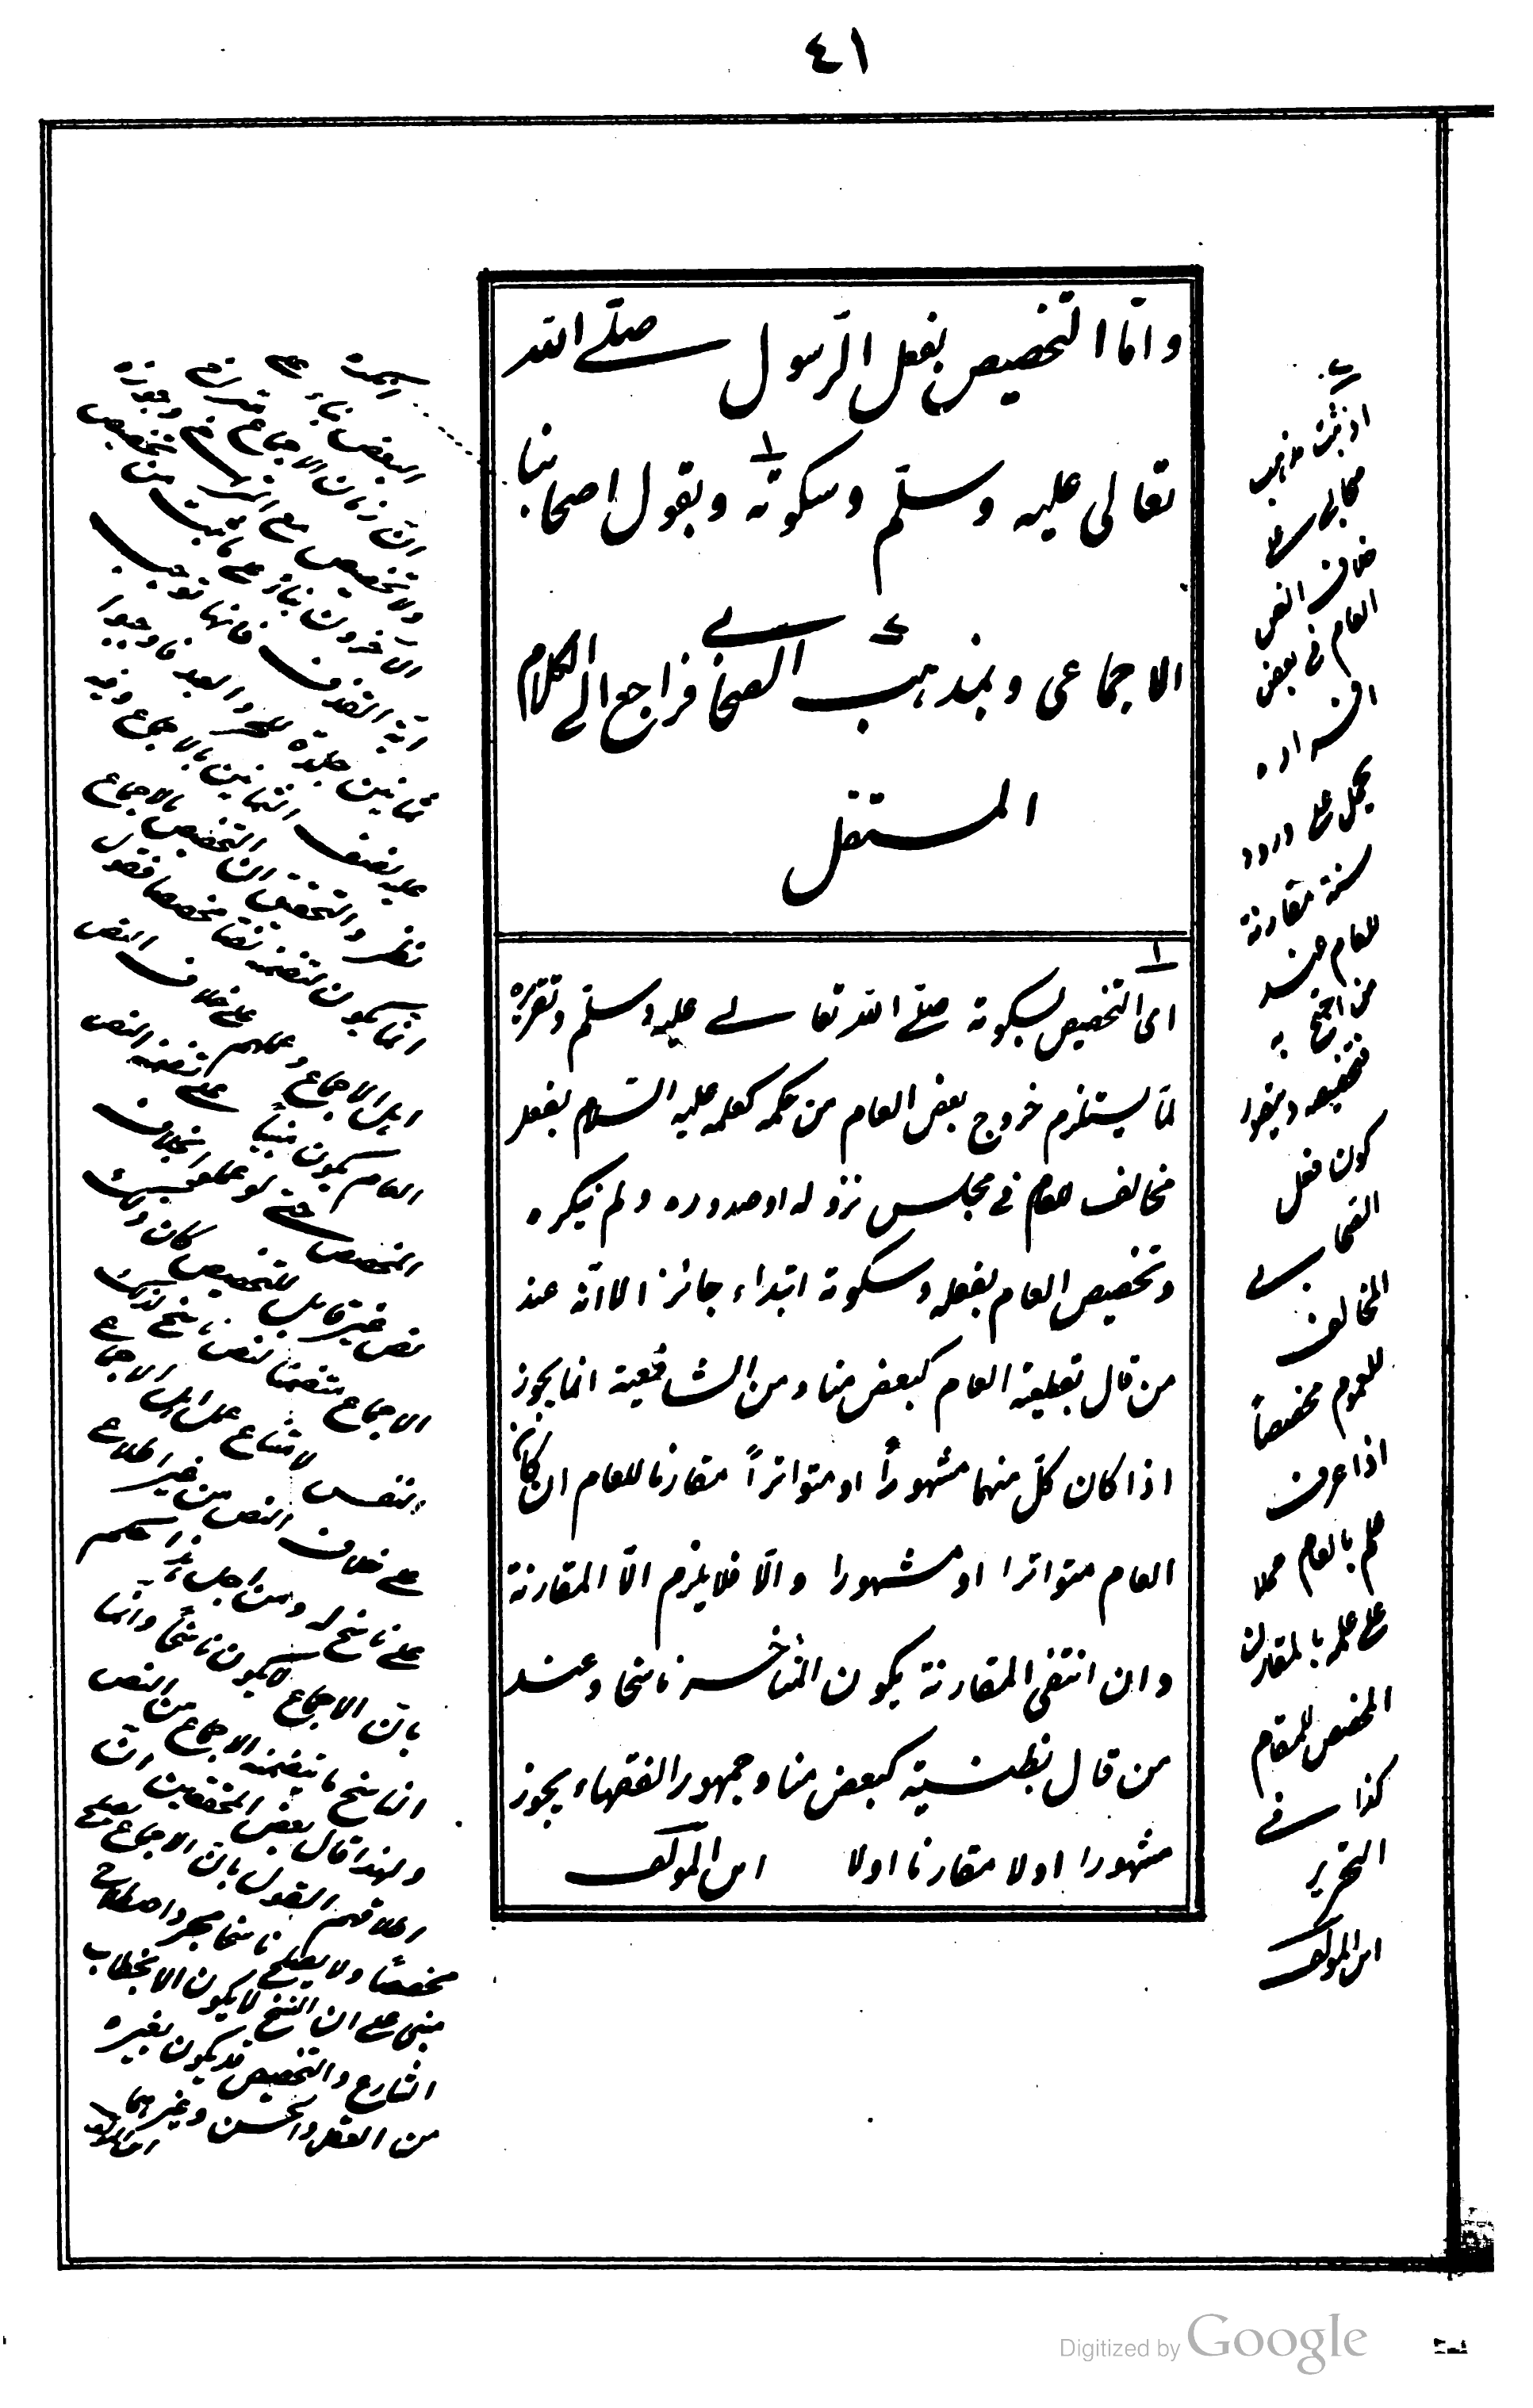 ٤١
واما التخصيص بفعل الرسول صلى الله
تعالى عليه وسلم وسكوته وبقول اصحابنا
الاجماعى وبمذهب الصحابى فراجع الى الكلام
المستقل
١
اى التخصيص لسكوته صلى الله تعالى عليه وسلم وتقريره
لما يستلزم خروج بعض العام من حكمه كعلمه عليه السلام بفعل
مخالف للعام فى مجلس نزوله او صدوره ولم ينكره
وتخصيص العام بفعله وسكوته ابتداء جائز الا انه عند
من قال بقطعية العام كبعض منا ومن الشافعية انما يجوز
اذا كان كل منهما مشهوراً او متواتراً مقارنا للعام ان كان
العام متواترا او مشهورا والا فلا يلزم الا المقارنة
وان انتفى المقارنة يكون المتأخر ناسخا وعند
من قال بظنية كبعض منا وجمهور الفقهاء يجوز
مشهورا اولا مقارنا اولا من المؤلف
اذ ثبت مذهب
صحابى على
خلاف النص
العام فى بعض
افراده
يحمل على ورود
سنة مقارنة
للعام عند
من احتج به
فتخصيصه ويجوز
كون فعل
الصحابى
المخالف
للعموم مخصصاً
اذا عرف
علم بالعام حملا
على علمه بالمقارن
المخصص للمقام
كذا فى
التحرير
من المؤلف
البعض بناء على
ان زمان الاجماع
ولا تخصيص مع التراخى وجوزه
الآخرون بناء على من تخصيص
آية القذف فانها توجب
ثمانين جلدة للحر والعبد فاوجبوا
عليه نصف الثمانين بالاجماع وفيه
نظر والتحقيق ان التخصيص بالاجماع
انما يكون لتضمنه نصا مخصصا
اهل الاجماع وعملهم على خلاف النص
العام يكون مبنياً على تضمنه النص
المخصص حتى لو عملوا بخلاف
نص غير قابل للتخصيص كان ذلك
الاجماع متضمنا لنص ناسخ لذلك
النص لامتناع عمل اهل الاجماع
على خلاف النص من غير اطلاع
على ناسخ له ومن اجل هذا حكم
بان الاجماع لا يكون ناسخاً وانما
الناسخ ما يتضمنه الاجماع من النص
ولهذا قال بعض المحققين ان
اطلاقهم القول بان الاجماع يصلح
مخصصاً ولا يصلح ناسخا مجرد اصطلاح
مبنى على ان النسخ لا يكون الا بخطاب
الشارع والتخصيص قد يكون بغيره
من العقل والحس وغيرهما
من المؤلف
Digitized by Google